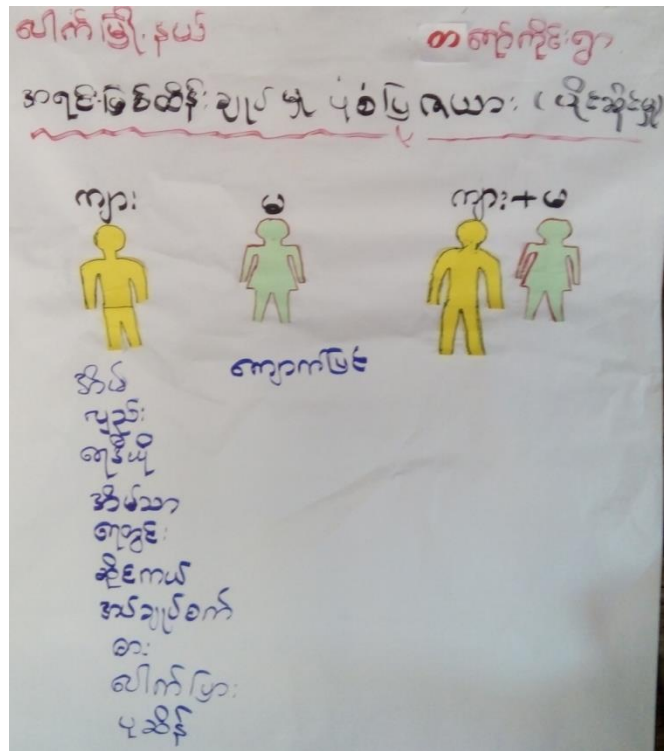 ပေါက်မြို့နယ် တရော်ကိုင်းရွာ
အရင်းမြစ်ထိန်းချုပ်မှု ပုံစံပြဇယား (ပိုင်ဆိုင်မှု)
ကျား မ ကျား+မ
အိမ် ကျောက်ပြင်
လှည်း
ရေဒီယို
အိမ်သာ
ရေတွင်း
ဆိုင်ကယ်
အပ်ချုပ်စက်
ဓား
ပေါက်ပြား
ပုဆိန်